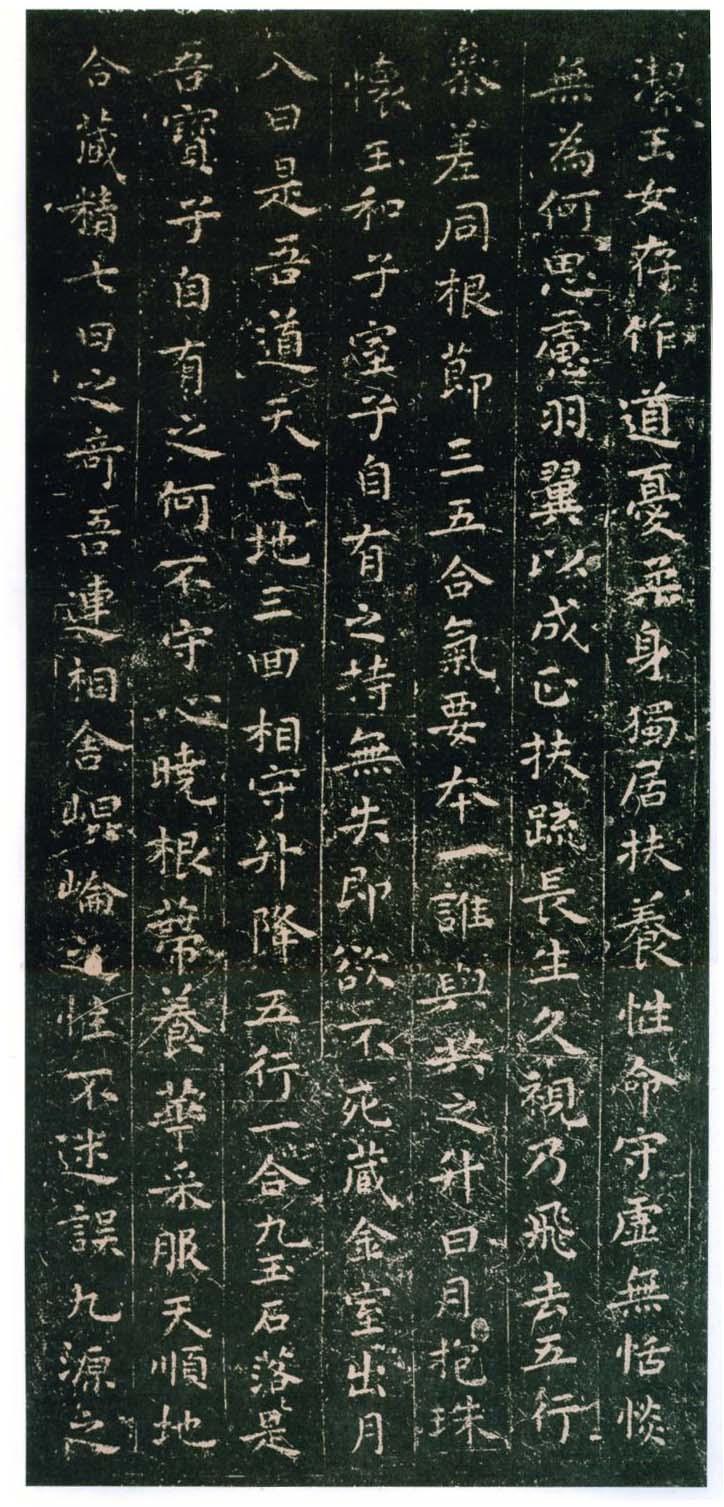 潔玉女存作道憂柔身獨居扶養性命守虛無恬惔
無為何思慮羽翼以成正扶疏長生久視乃飛去五行
參差同根節三五合氣要本一誰與共之升日月抱珠
懷玉和子室子自有之持無失即欲不死藏金室出月
入日是吾道天七地三回相守升降五行一合九玉石落是
吾寶子自有之何不守心曉根蔕養華采服天順地
合藏精七日之奇吾連相舍崐崘之性不迷誤九源之